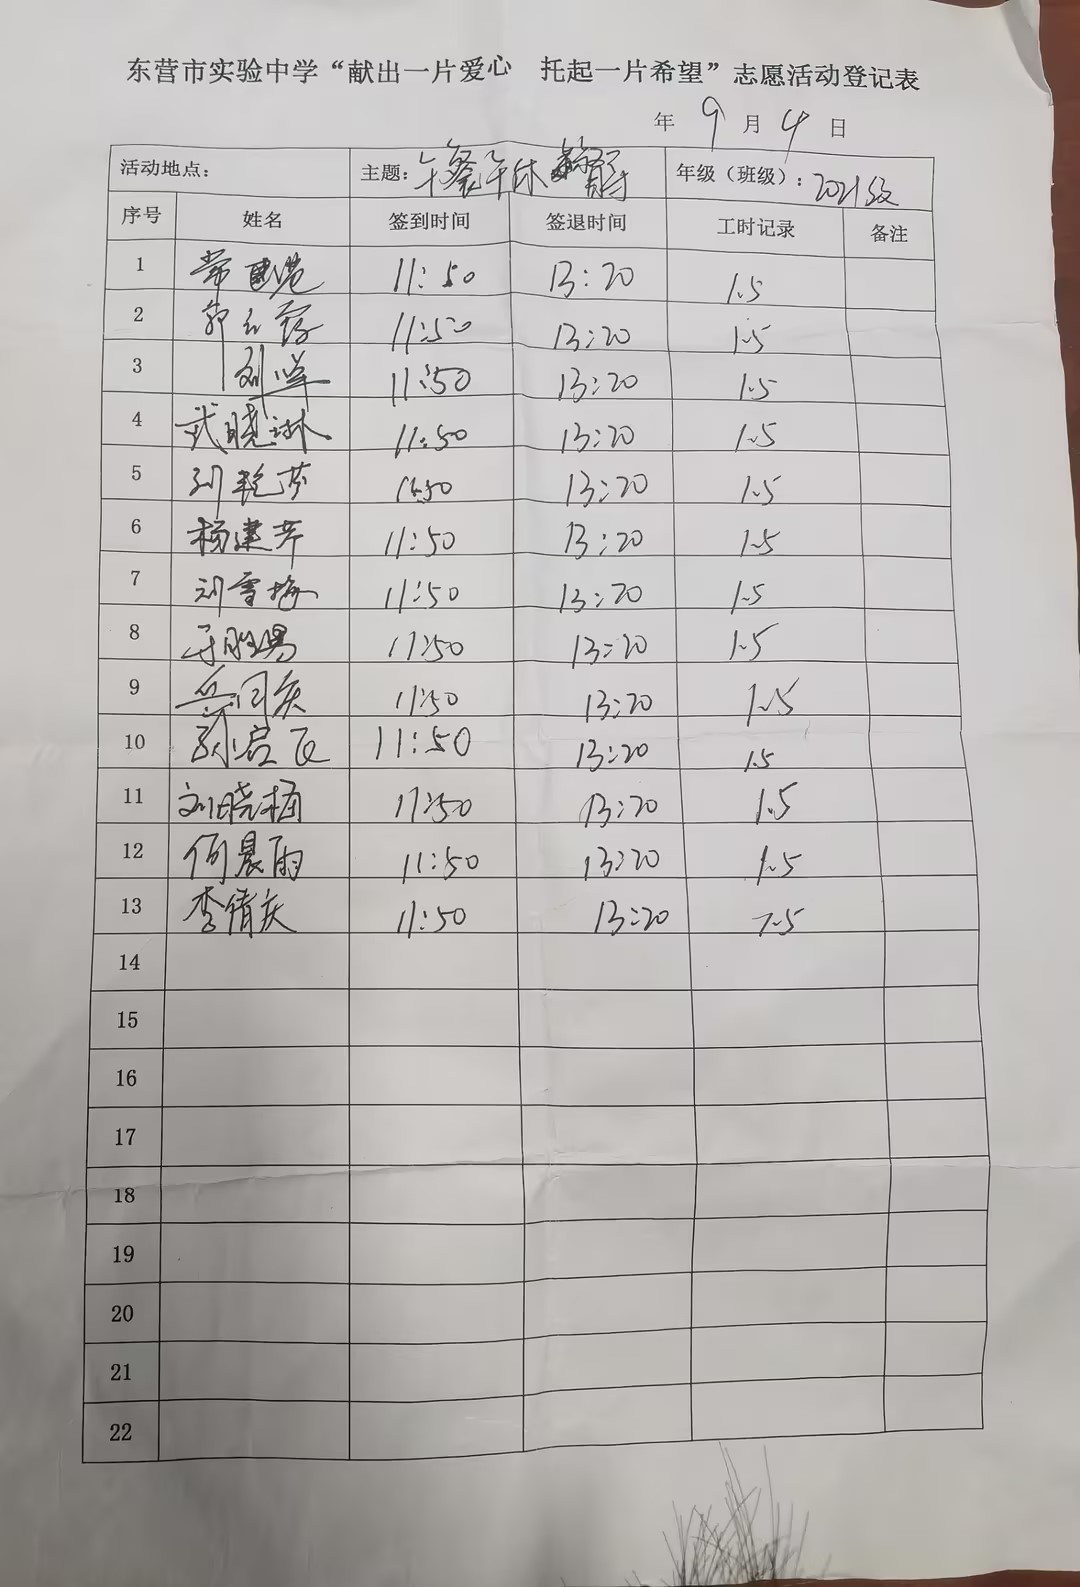 东营市实验中学“献出一片爱心 托起一片希望”志愿活动登记表
年 9 月 4 日
活动地点: 主题: 午餐午休 年级（班级）: 2021级
序号 姓名 签到时间 签退时间 工时记录 备注
1 常 11:50 13:20 1.5
2 11:50 13:20 1.5
3 刘 11:50 13:20 1.5
4 武晓琳 11:50 13:20 1.5
5 刘艳芬 11:50 13:20 1.5
6 杨建芹 11:50 13:20 1.5
7 刘雪梅 11:50 13:20 1.5
8 11:50 13:20 1.5
9 岳同庆 11:50 13:20 1.5
10 11:50 13:20 1.5
11 刘晓楠 11:50 13:20 1.5
12 何晨雨 11:50 13:20 1.5
13 李倩庆 11:50 13:20 1.5
14
15
16
17
18
19
20
21
22